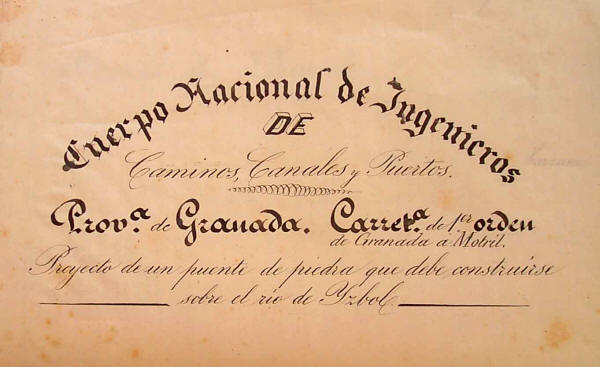 Cuerpo Nacional de Ingenieros
DE
Caminos, Canales y Puertos.
Provª de Granada. Carretª de 1er orden
de Granada a Motril.
Proyecto de un puente de piedra que debe construirse
sobre el rio de Yzbol